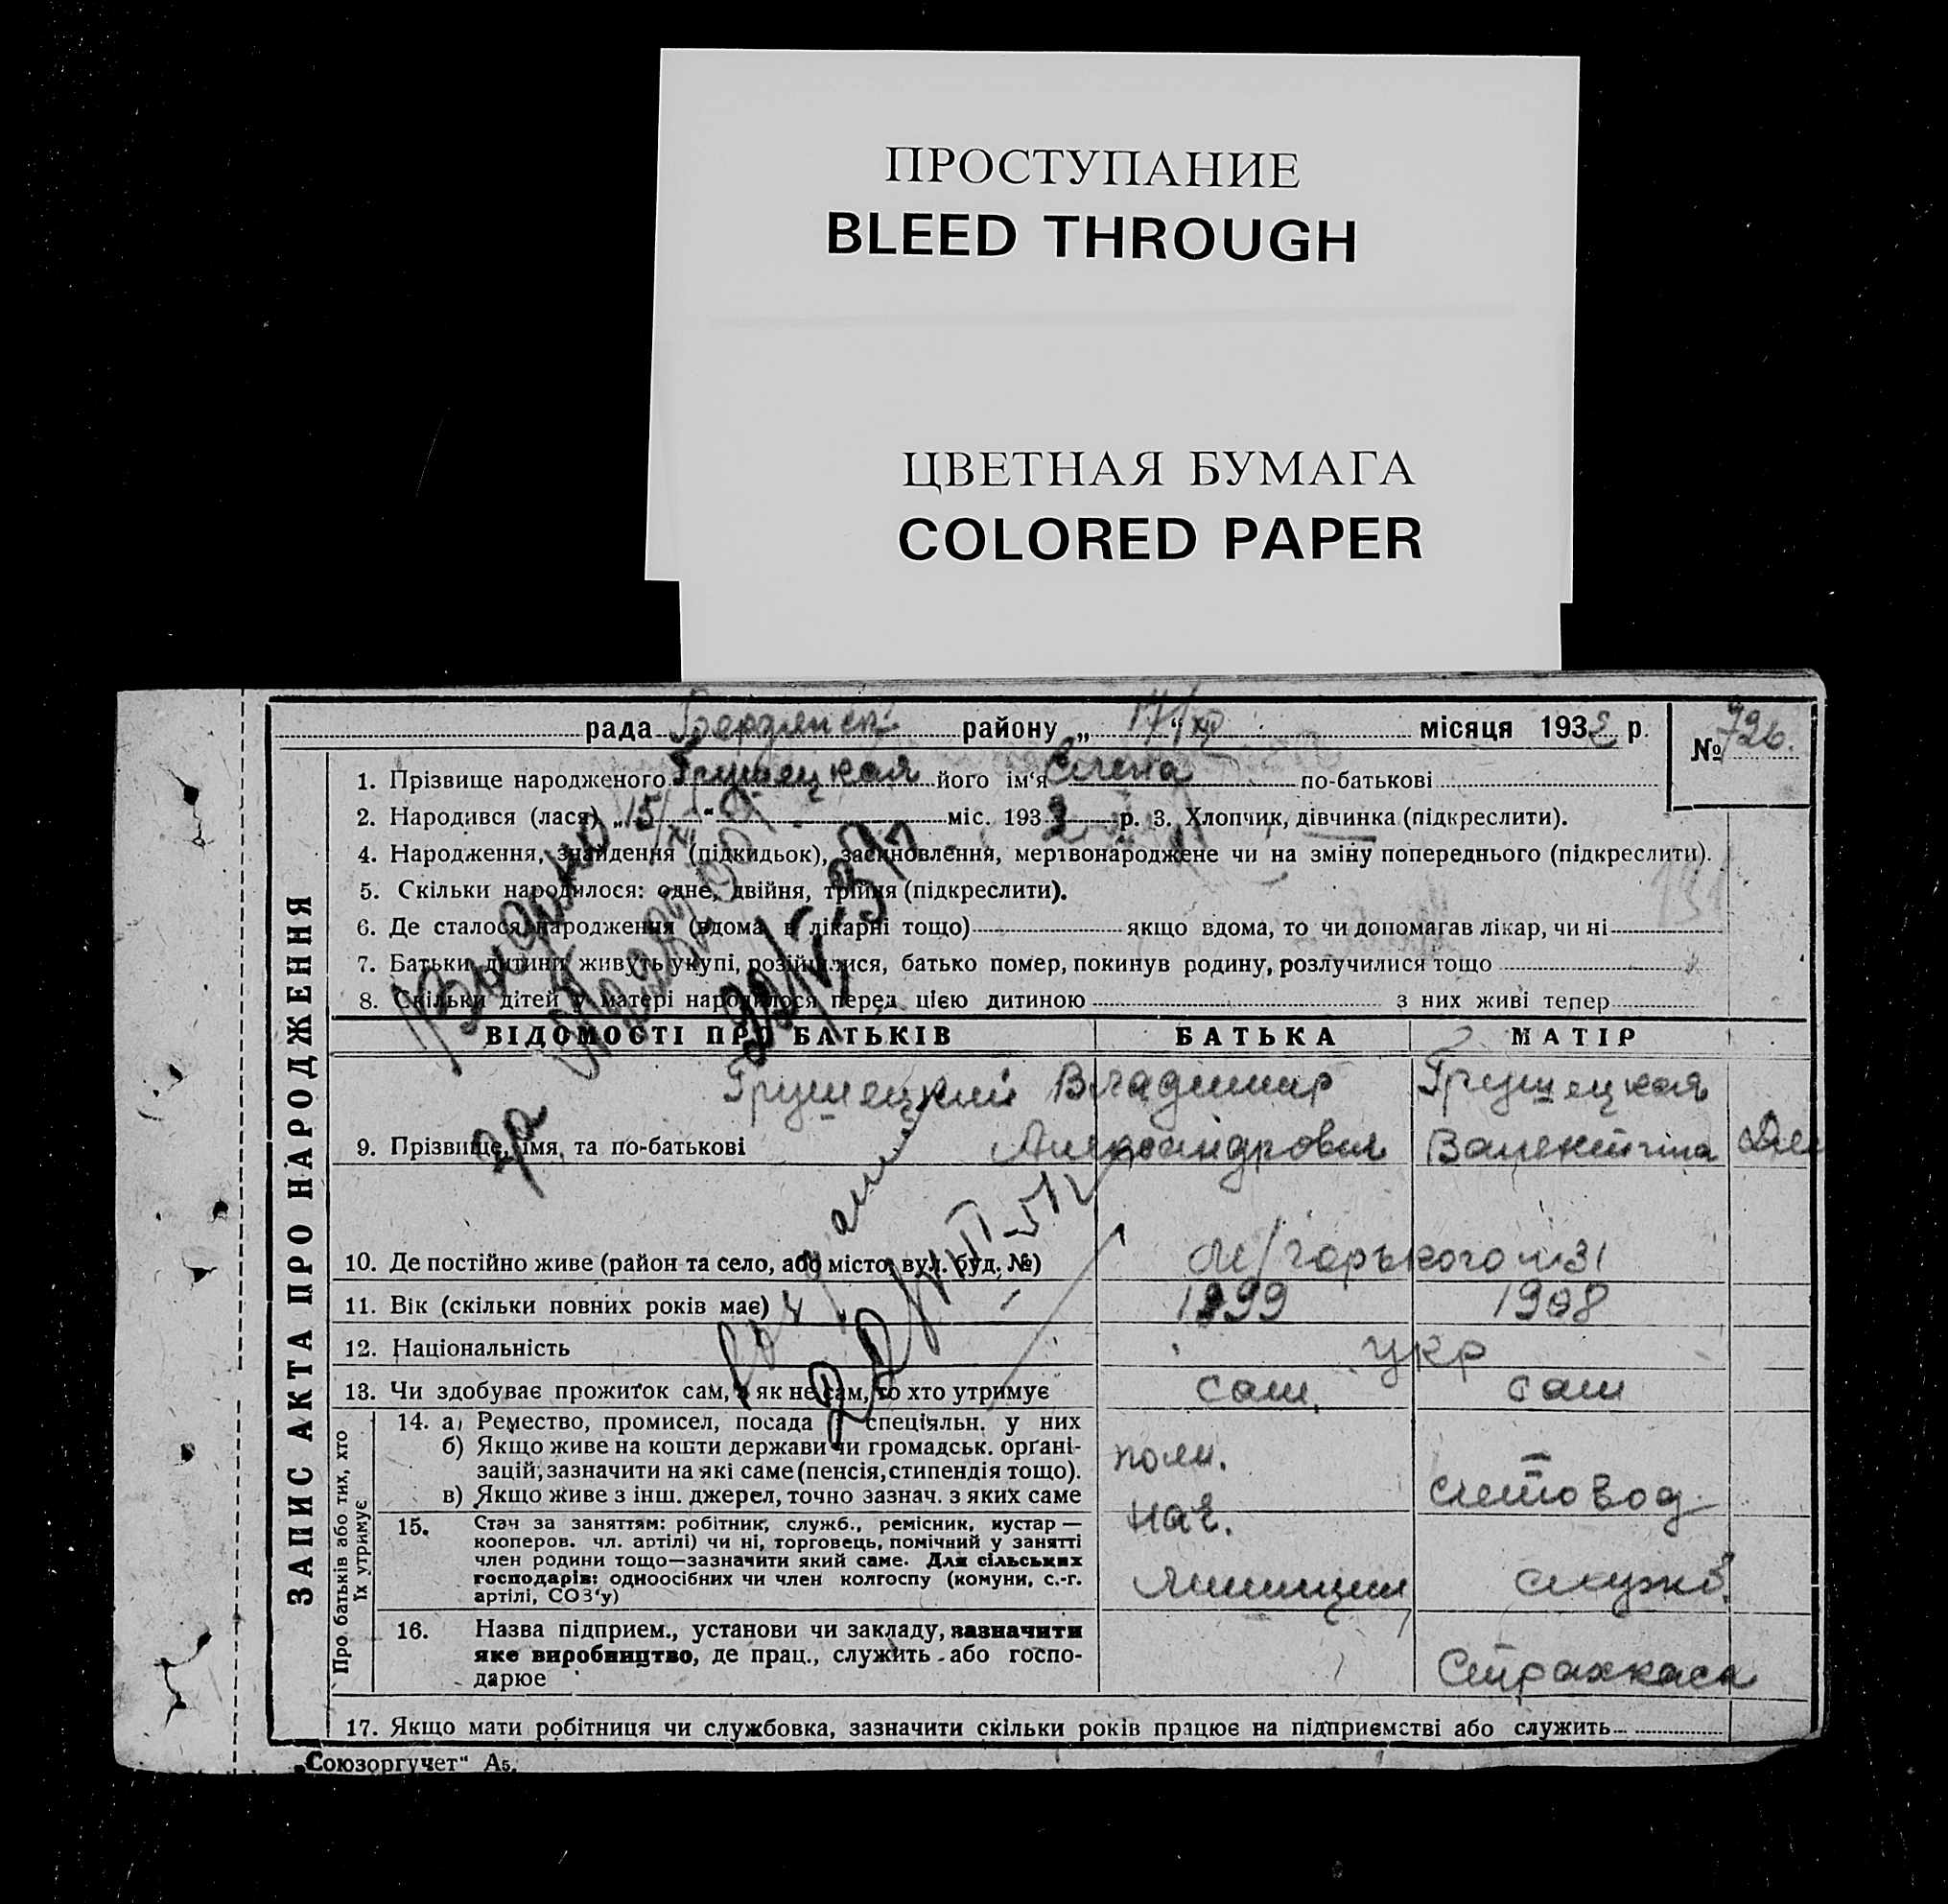 ПРОСТУПАНИЕ
BLEED THROUGH
ЦВЕТНАЯ БУМАГА
COLORED PAPER
рада Бердянск району „ 17/XII “ місяця 1932 р.
№ 726.
1. Прізвище народженого Грушецкая його ім‘я Елена по-батькові
2. Народився (лася) „ 15/XII “ міс. 1932 р. 3. Хлопчик, дівчинка (підкреслити).
4. Народження, знайдення (підкидьок), засиновлення, мертвонароджене чи на зміну попереднього (підкреслити).
5. Скільки народилося: одне, двійня, трійня (підкреслити).
6. Де сталося народження (вдома, в лікарні тощо) якщо вдома, то чи допомагав лікар, чи ні
7. Батьки дитини живуть укупі, розійшлися, батько помер, покинув родину, розлучилися тощо
8. Скільки дітей у матері народилося перед цією дитиною з них живі тепер
ЗАПИС АКТА ПРО НАРОДЖЕННЯ
ВІДОМОСТІ ПРО БАТЬКІВ БАТЬКА МАТІР
Грушецкий Владимир Грушецкая
9. Прізвище, імя, та по-батькові Александрович Валентина
10. Де постійно живе (район та село, або місто, вул. буд. №) М/Горького №31
11. Вік (скільки повних років має) 1899 1908
12. Національність укр
13. Чи здобуває прожиток сам, а як не сам, то хто утримує сам сам
Про батьків або тих, хто їх утримує
14. а) Ремество, промисел, посада і спеціяльн. у них
б) Якщо живе на кошти держави чи громадськ. орґані-
зацій, зазначити на які саме (пенсія, стипендія тощо).
в) Якщо живе з інш. джерел, точно зазнач. з яких саме
пом.
нач.
милиции
счетовод
15. Стан за заняттям: робітник, служб., ремісник, кустар —
кооперов. чл. артілі) чи ні, торговець, помічний у занятті
член родини тощо—зазначити який саме. Для сільських
господарів: одноосібних чи член колгоспу (комуни, с.-г.
артілі, СОЗ‘у)
служб.
16. Назва підприєм., установи чи закладу, зазначити
яке виробництво, де прац., служить або госпо-
дарює
Страхкаса
17. Якщо мати робітниця чи службовка, зазначити скільки років працює на підприємстві або служить
„Союзоргучет“ А5.